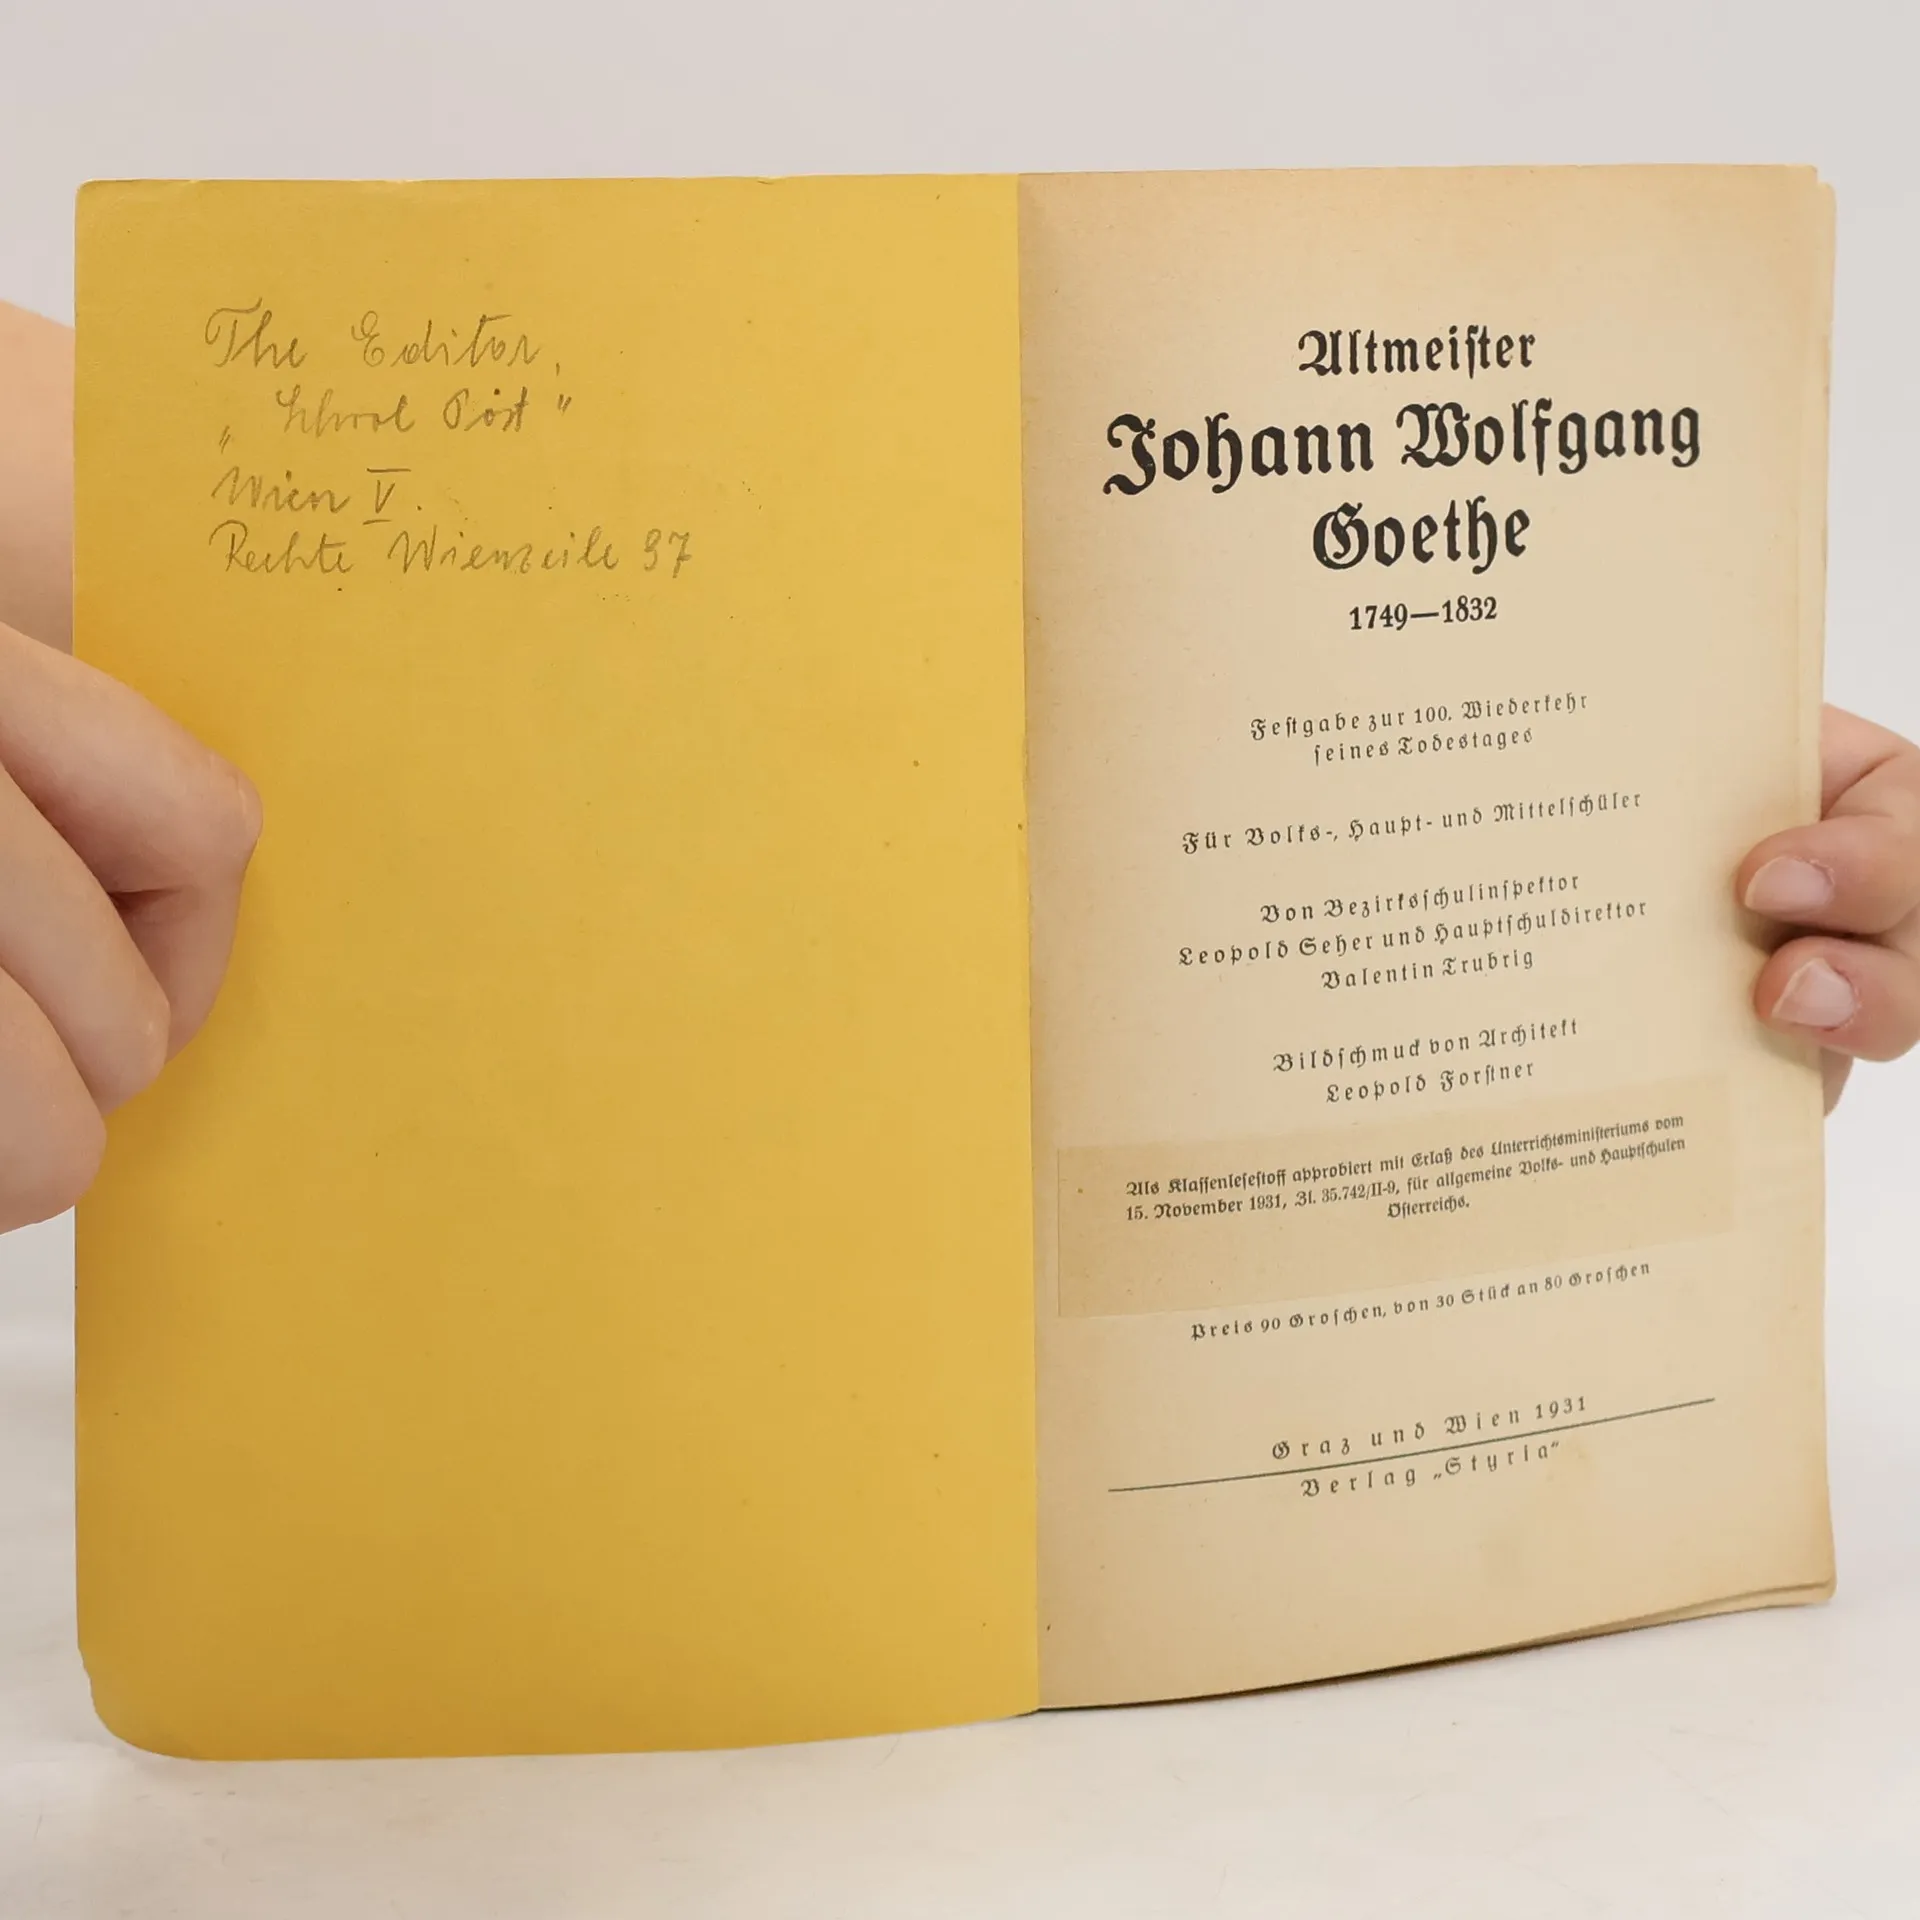 The Editor,
„ School Post "
Wien V.
Rechte Wienzeile 97
Altmeiſter
Johann Wolfgang
Goethe
1749—1832
Feſtgabe zur 100. Wiederkehr
ſeines Todestages
Für Volks-, Haupt- und Mittelſchüler
Von Bezirksſchulinſpektor
Leopold Seher und Hauptſchuldirektor
Valentin Trubrig
Bildſchmuck von Architekt
Leopold Forſtner
Als Klaſſenleſeſtoff approbiert mit Erlaß des Unterrichtsminiſteriums vom
15. November 1931, Zl. 35.742/II-9, für allgemeine Volks- und Hauptſchulen
Öſterreichs.
Preis 90 Groſchen, von 30 Stück an 80 Groſchen
Graz und Wien 1931
Verlag „Styria“